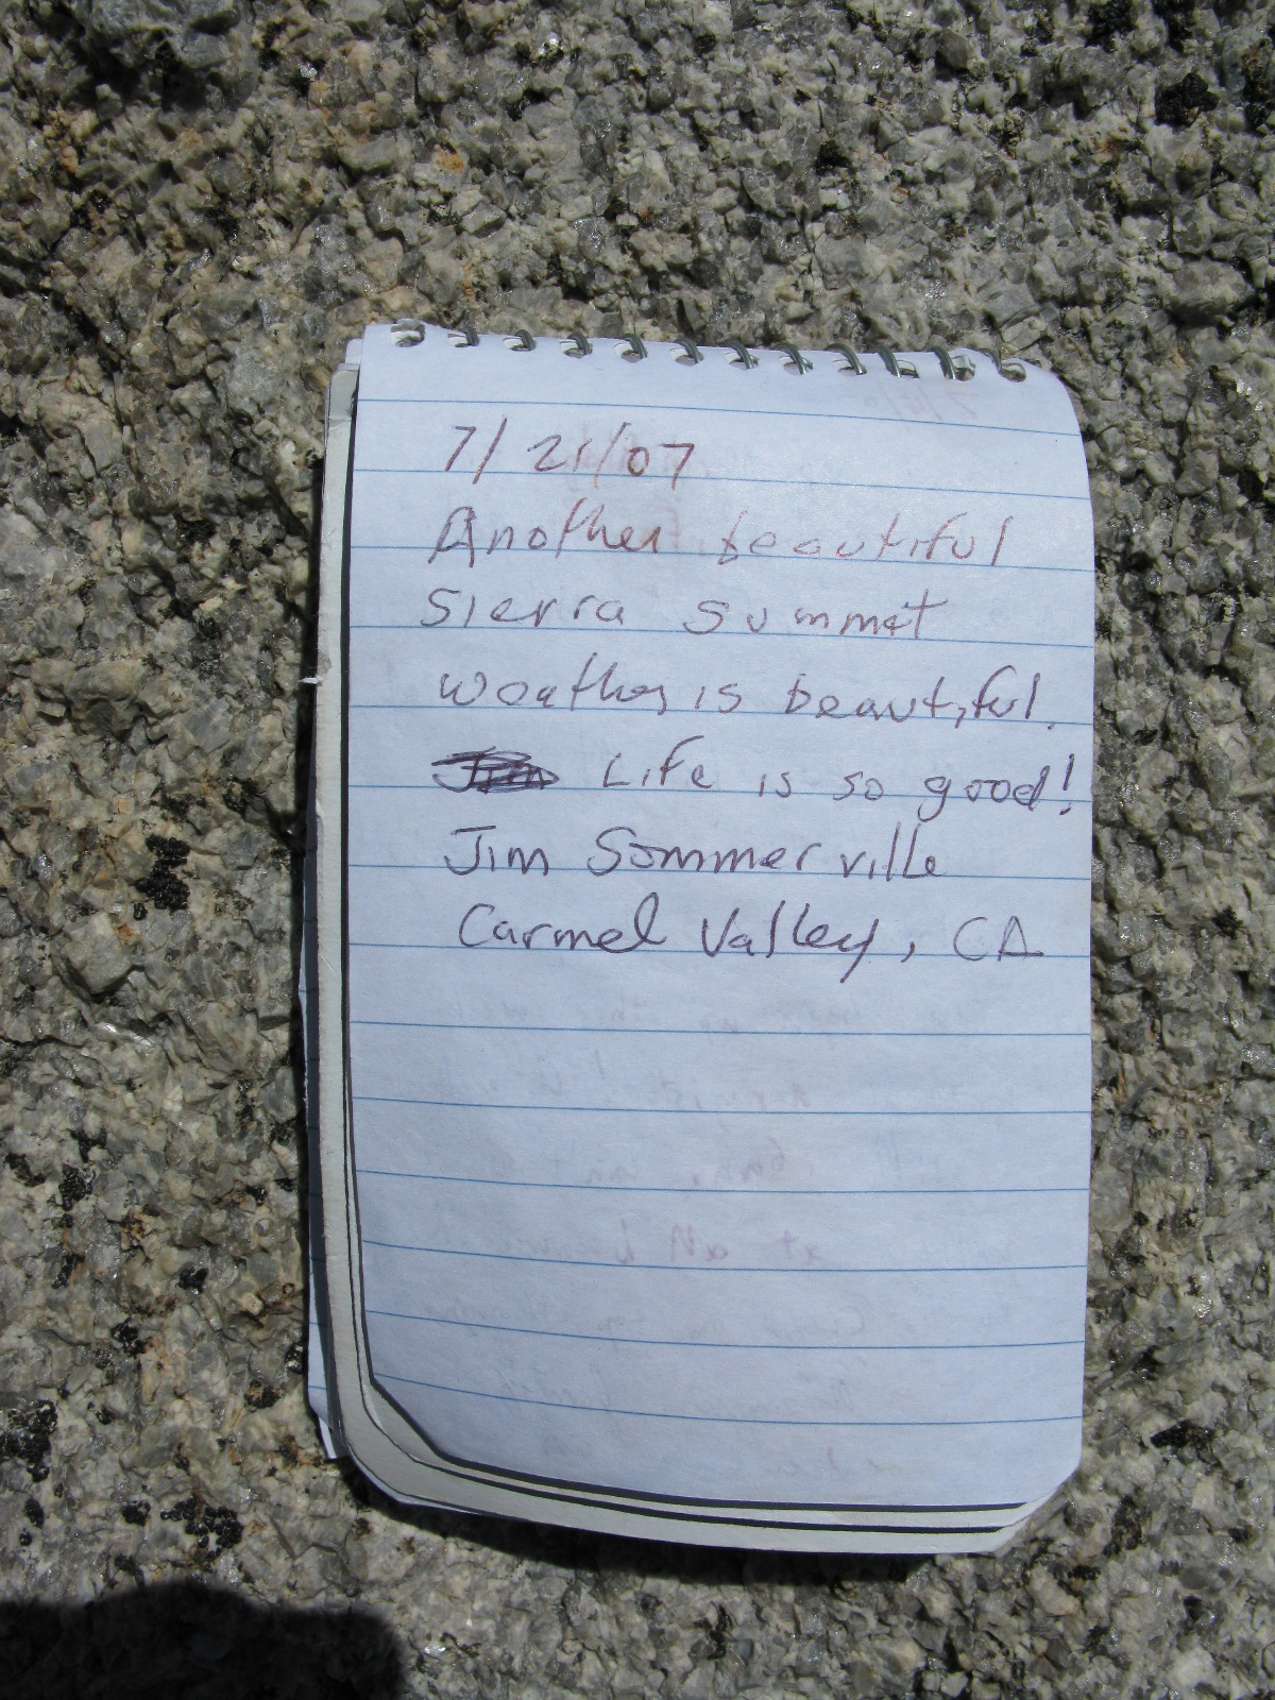 7/21/07
Another beautiful
Sierra Summit
Weather is beautiful.
Jim Life is so good!
Jim Sommerville
Carmel Valley, CA
at all